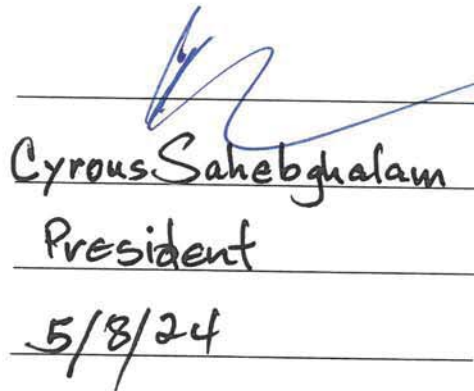 Cyrous Sahebghalam
President
5/8/24